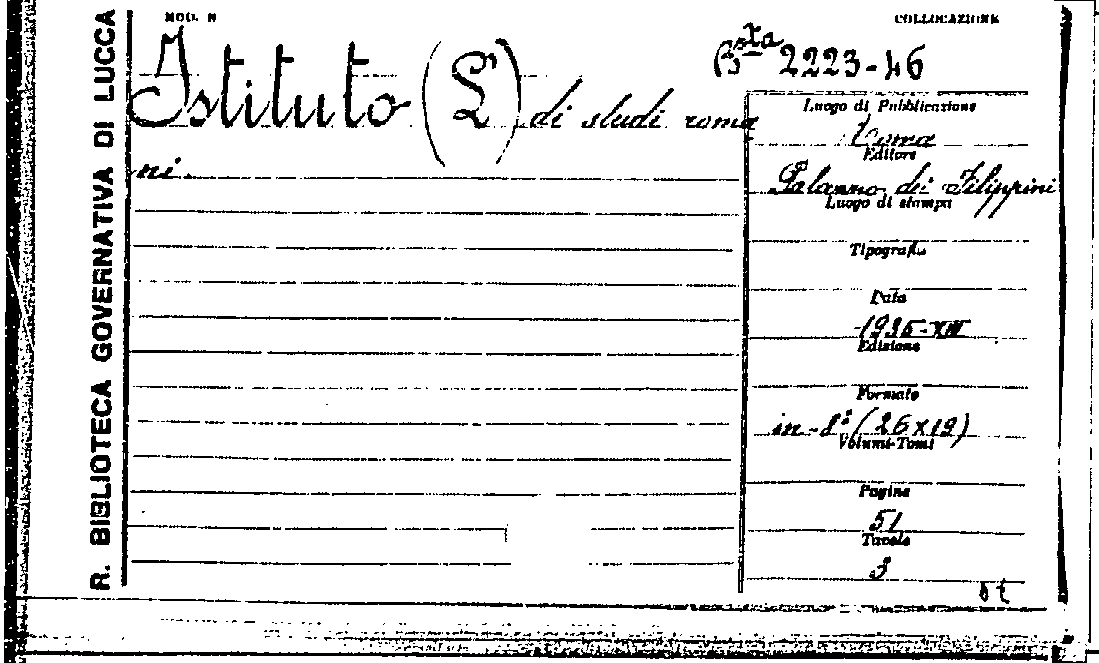 R. BIBLIOTECA GOVERNATIVA DI LUCCA
MOD. N
COLLOCAZIONE
Bsta 2223-46
Istituto (L') di studi roma
ni.
Luogo di Pubblicazione
Roma
Editore
Palazzo dei Filippini
Luogo di stampa
Tipografia
Data
1935-XIII
Edizione
Formato
in-8° (26x19)
Volumi-Tomi
Pagine
51
Tavole
3